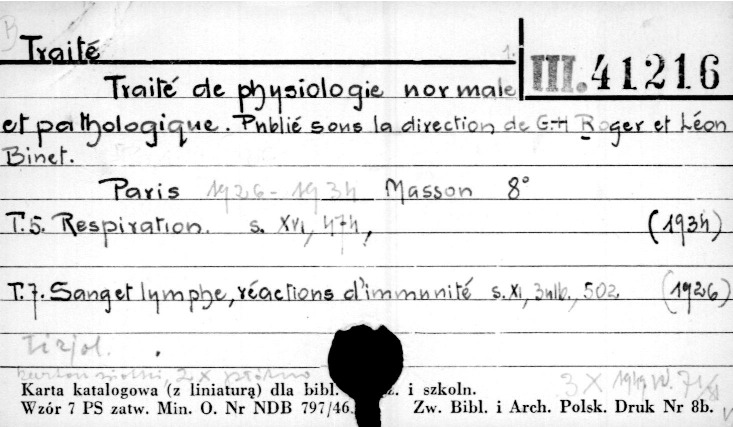 Traité
III. 41216
Traité de physiologie normale
et pathologique. Publié sous la direction de G-H Roger et Léon
Binet.
Paris 1926-1934 Masson 8°
T. 5. Respiration. s. XVI, 474, (1934)
T. 7. Sang et lymphe, réactions d'immunité s. XI, 3nlb., 502 (1926)
Fizjol.
2 x
3 X 1949
Karta katalogowa (z liniaturą) dla bibl. i szkoln.
Wzór 7 PS zatw. Min. O. Nr NDB 797/46. Zw. Bibl. i Arch. Polsk. Druk Nr 8b.